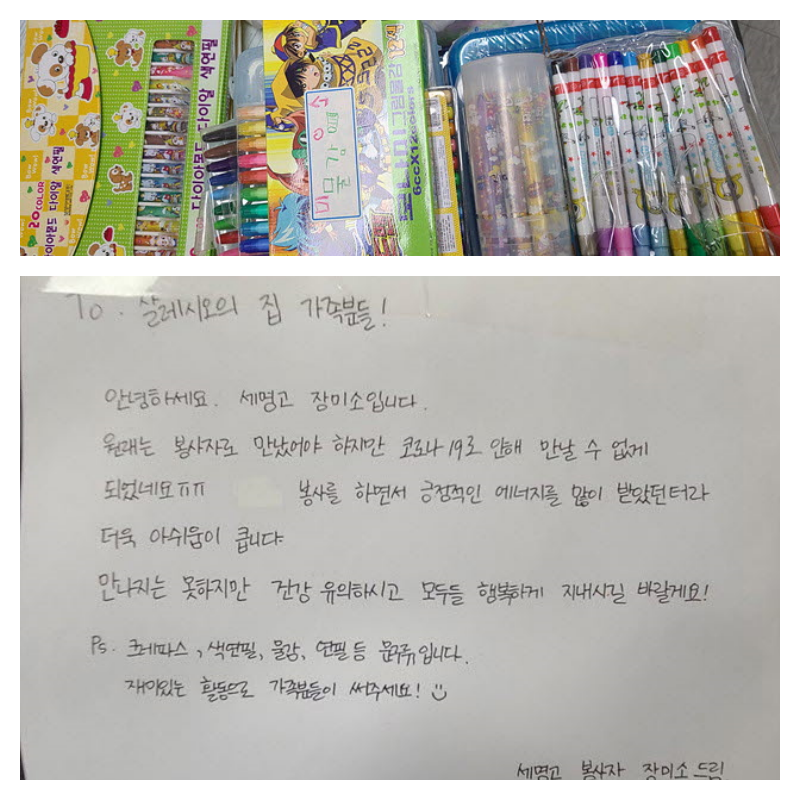 20 COLOR
다이아몬드 다이알 색연필
다이아몬드 다이알 색연필
물감
6ccX12colors
To. 살레시오의 집 가족분들!
안녕하세요. 세명고 장미소입니다.
원래는 봉사자로 만났어야 하지만 코로나19로 인해 만날 수 없게
되었네요ㅠㅠ 봉사를 하면서 긍정적인 에너지를 많이 받았던터라
더욱 아쉬움이 큽니다.
만나지는 못하지만 건강 유의하시고 모두들 행복하게 지내시길 바랄게요!
Ps. 크레파스, 색연필, 물감, 연필 등 문구류입니다.
재미있는 활동으로 가족분들이 써주세요! :)
세명고 봉사자 장미소 드림